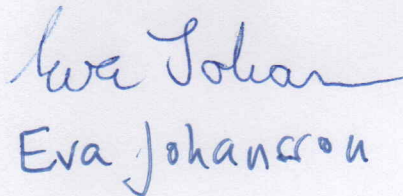 Eva Johan
Eva Johansson